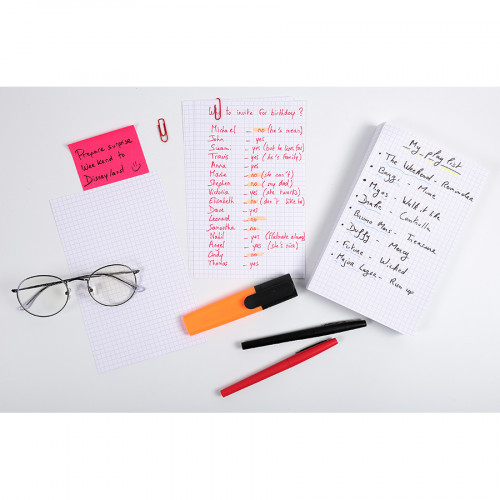 Prepare surprise
Weekend to
Disneyland
Who to invite for birthday ?
Michael _ no (he's mean)
John _ yes
Swami _ yes (but he lives far)
Travis _ yes (he's family)
Anna _ yes
Maria _ no (she can't)
Stephen _ no (my dad)
Victoria _ yes (she tweets)
Elizabeth _ no (don't like her)
Dave _ yes
Leonard _ no
Samantha _ no
Nabil _ yes
Angel _ yes (she's nice)
Cindy _ no
Thomas _ yes
My play list
• The Weekend - Reminder
• Bazzi - Mine
• Migos - Walk it like
• Drake - Controlla
• Bruno Mars - Treasure
• Duffy - Mercy
• Future - Wicked
• Major Lazer - Run up